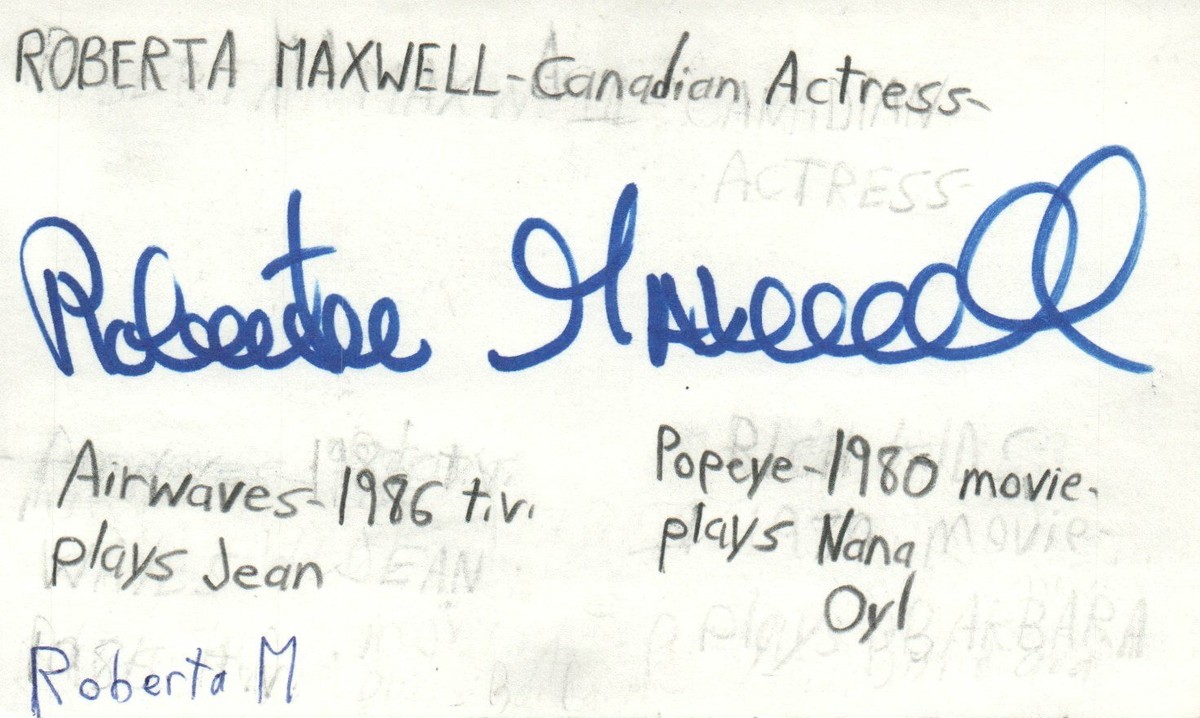 ROBERTA MAXWELL-Canadian Actress-
ACTRESS-
Roberta Maxwell
Airwaves-1986 t.v.
plays Jean
Popeye-1980 movie.
plays Nana
Oyl
Roberta M